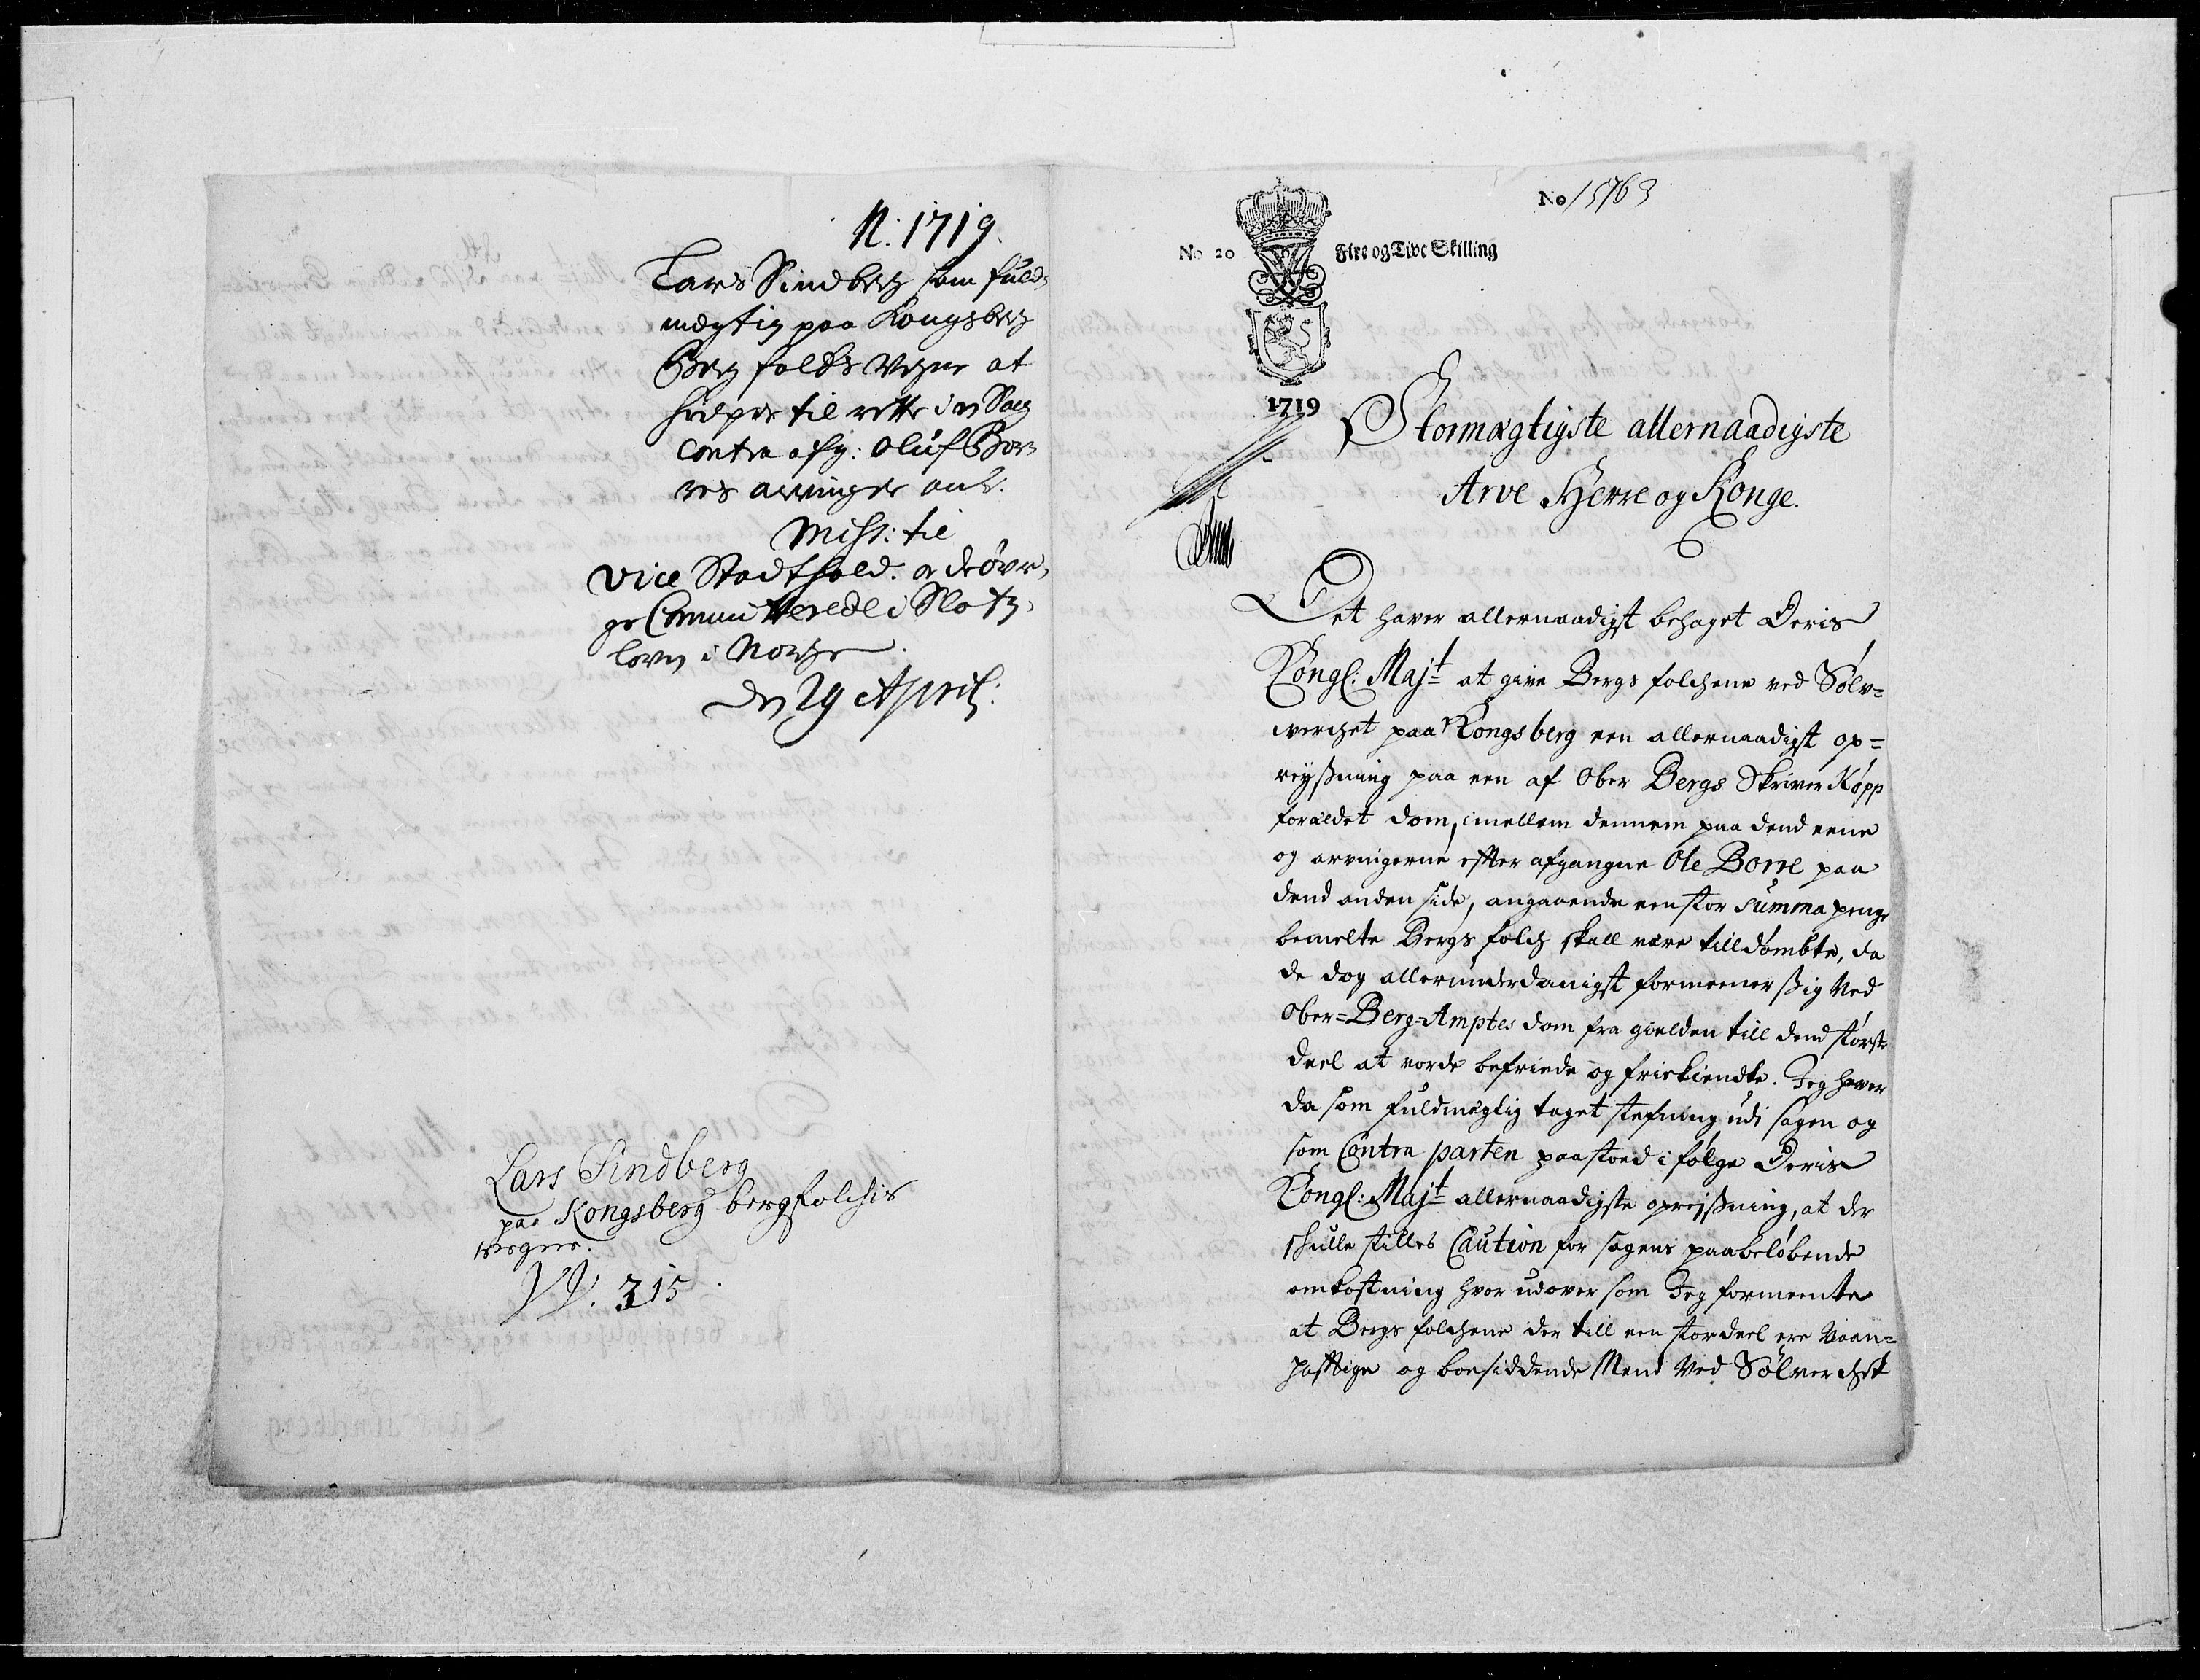 N. 1719.
Lars Sindberg som fuld,
megtig paa Kongsberg
Berg folks Vegne at
hielpes til rette i en Sag
contra afg: Oluf Bor,
res arvinger anl.
Miss: til
Vice Stadthold. og de øvri,
ge Committerede i Slotz,
loven i Norge.
den 29 April:
Lars Sindberg
paa Kongsberg bergfolchis
weegne.
W. 315.
No 15763
No 20 Fire og Tive Skilling
1719
Stormægtigste allernaadigste
Arve Herre og Konge.
Det haver allernaadigst behaget Deris
Kongl: Majt at give Bergs folchene ved Sølv=
verchet paa Kongsberg een allernaadigst op=
reyßning paa een af Ober Bergs Skriver Køpp
forældet dom, imellem dennem paa dend eene
og arvingerne effter afgangne Ole Borre paa
dend anden side, angaaende een stor Summa penge
bemelte Bergs folch skall være tilldømbte, da
de dog allerunderdanigst formeener ßig Ved
Ober=Berg=Amptes dom fra gielden till dend største
deel at vorde befriede og friekiendte. Jeg haver
da som fuldmegtig taget stefning udi sagen og
som Contra parten paastoed i følge Deris
Kongl: Majt allernaadigste opreißning, at der
skulle stilles Caution for sagens paabeløbende
omkostning hvor udover som Jeg formeente
at Bergs folchene der till een stor deel ere Vaan=
hafftige og boesiddende Mend Ved Sølverchet